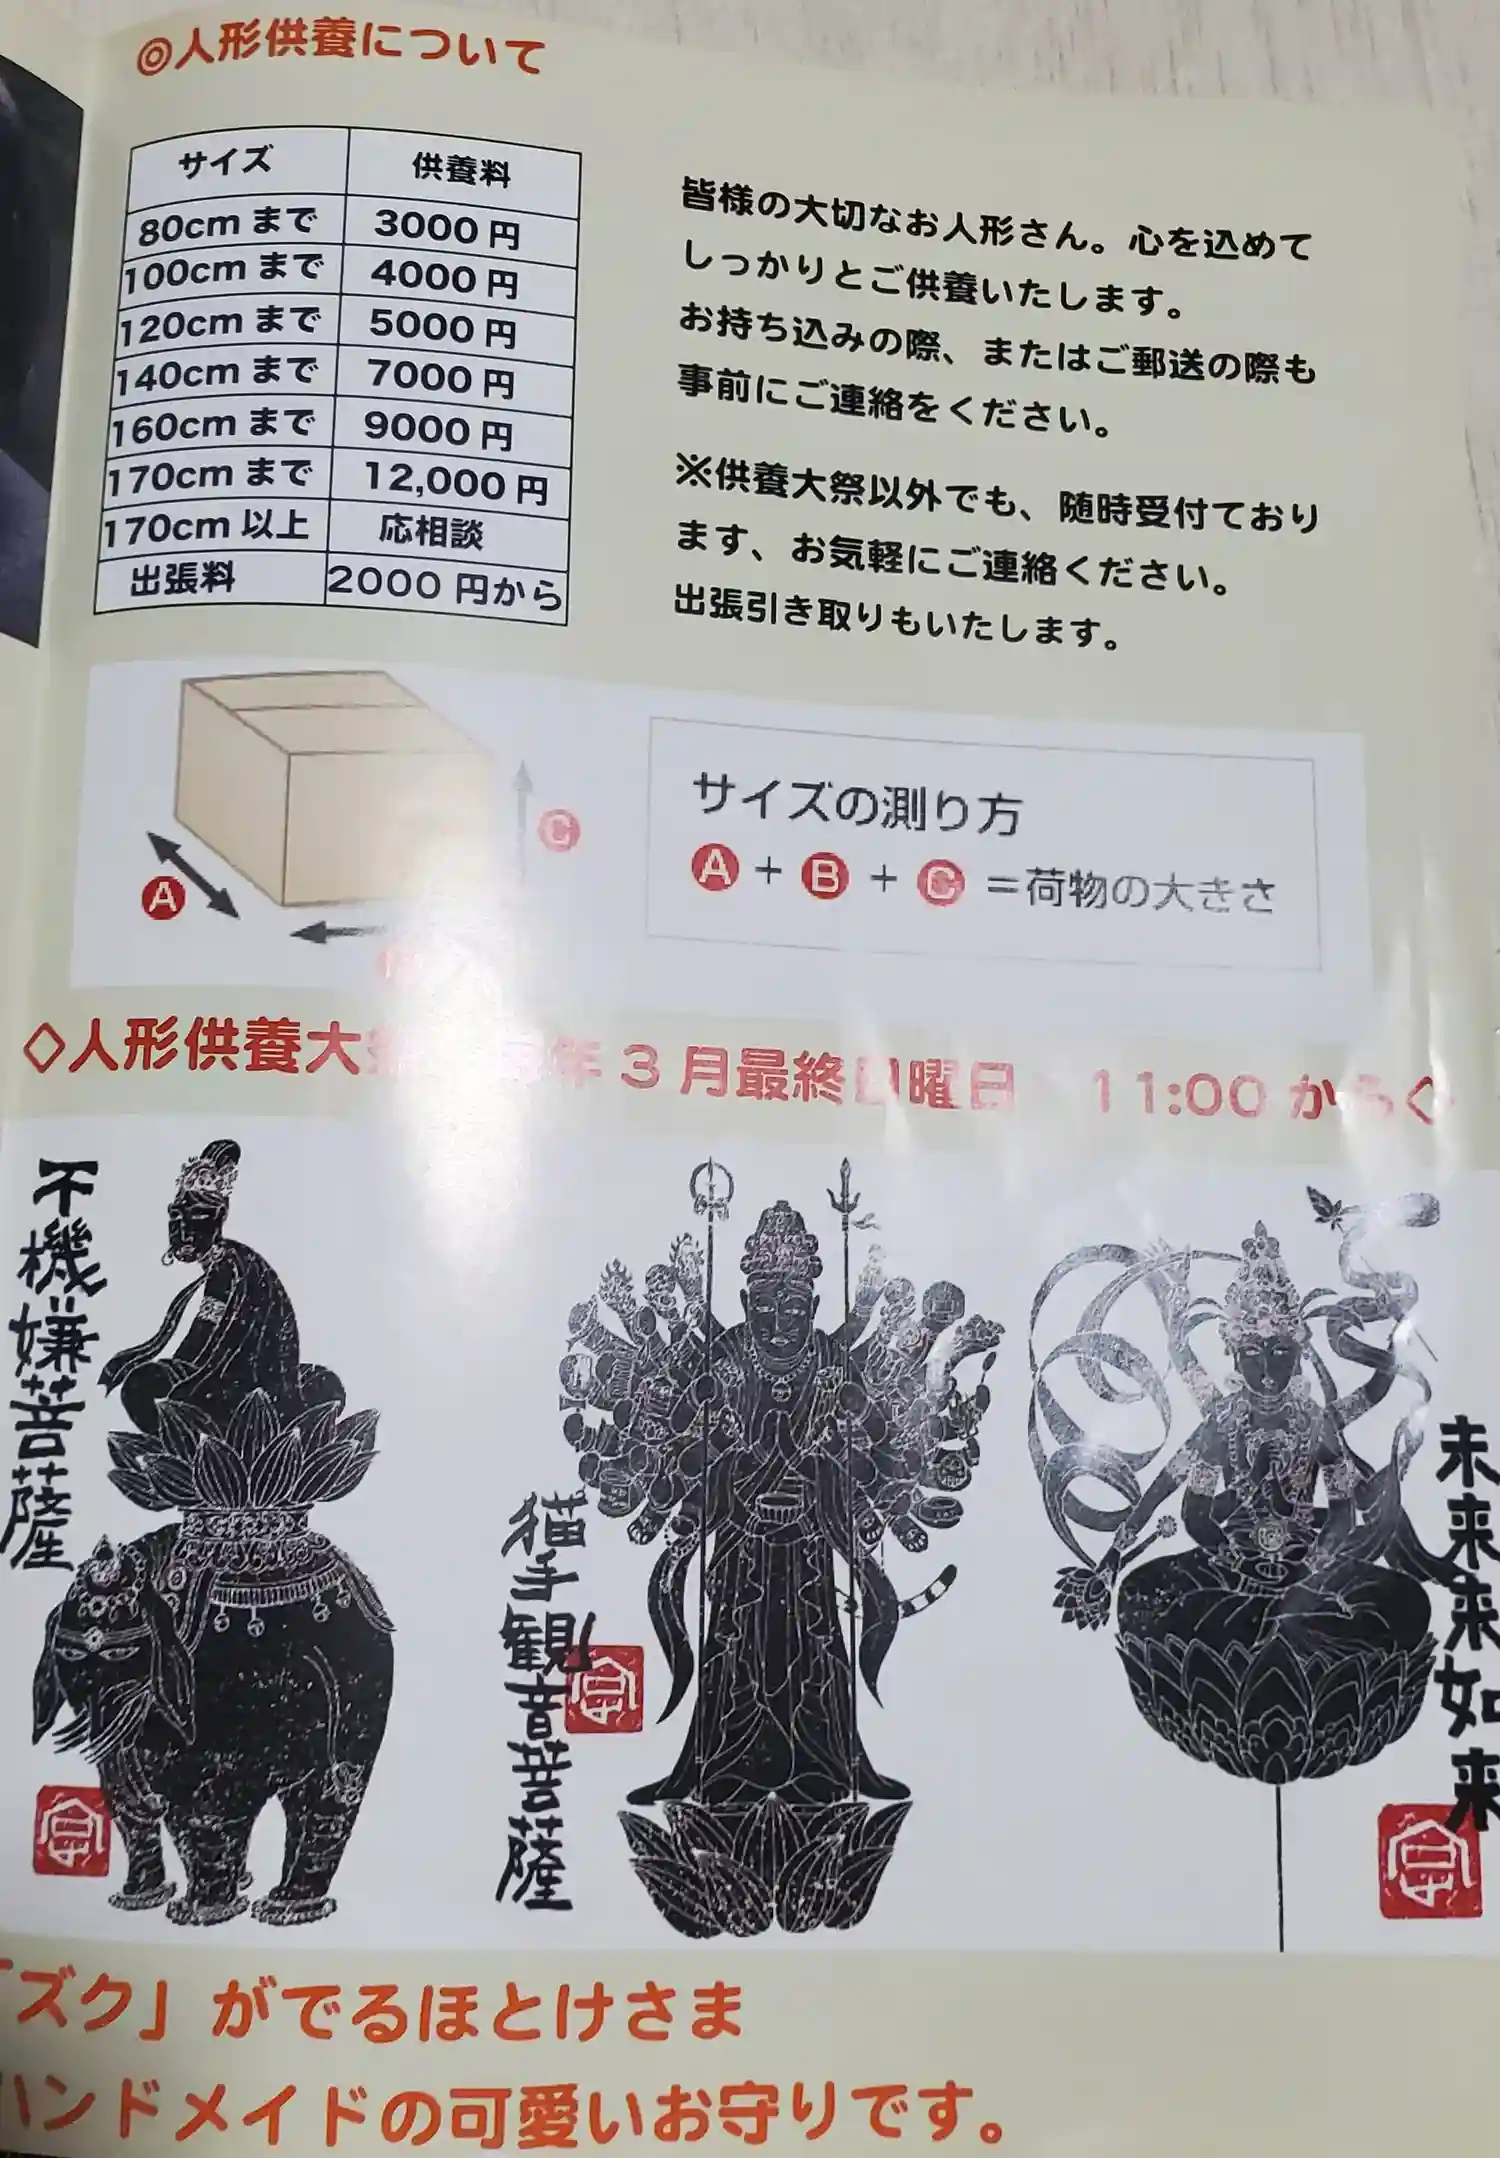 ◎人形供養について
サイズ 供養料
80cm まで 3000 円
100cm まで 4000 円
120cm まで 5000 円
140cm まで 7000 円
160cm まで 9000 円
170cm まで 12,000 円
170cm 以上 応相談
出張料 2000 円から
皆様の大切なお人形さん。心を込めて
しっかりとご供養いたします。
お持ち込みの際、またはご郵送の際も
事前にご連絡をください。
※供養大祭以外でも、随時受付ており
ます、お気軽にご連絡ください。
出張引き取りもいたします。
A
C
サイズの測り方
A + B + C =荷物の大きさ
◇人形供養大 年 3 月最終日曜日 11:00 から◇
不機嫌菩薩
猫手観音菩薩
未来来如来
「ズク」がでるほとけさま
ハンドメイドの可愛いお守りです。